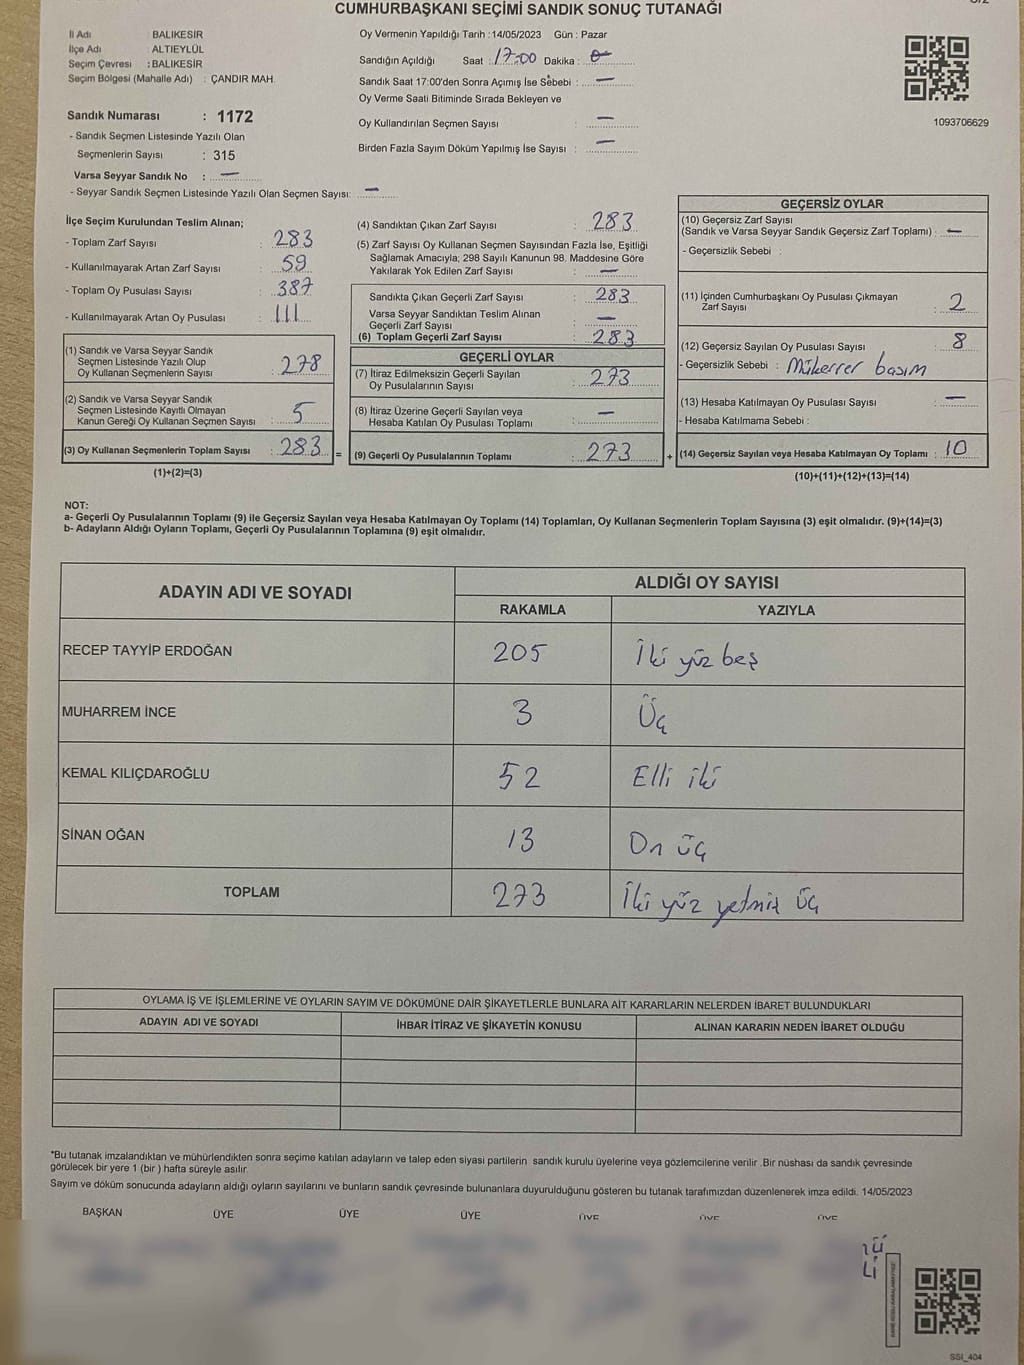 CUMHURBAŞKANI SEÇİMİ SANDIK SONUÇ TUTANAĞI
İl Adı : BALIKESİR
İlçe Adı : ALTIEYLÜL
Seçim Çevresi : BALIKESİR
Seçim Bölgesi (Mahalle Adı) : ÇANDIR MAH.
Sandık Numarası : 1172
- Sandık Seçmen Listesinde Yazılı Olan
Seçmenlerin Sayısı : 315
Varsa Seyyar Sandık No : —
- Seyyar Sandık Seçmen Listesinde Yazılı Olan Seçmen Sayısı: —
Oy Vermenin Yapıldığı Tarih :14/05/2023 Gün : Pazar
Sandığın Açıldığı Saat : 17:00 Dakika : 0
Sandık Saat 17:00'den Sonra Açımış İse Sebebi : —
Oy Verme Saati Bitiminde Sırada Bekleyen ve
Oy Kullandırılan Seçmen Sayısı : —
Birden Fazla Sayım Döküm Yapılmış İse Sayısı : —
1093706629
İlçe Seçim Kurulundan Teslim Alınan;
- Toplam Zarf Sayısı : 283
- Kullanılmayarak Artan Zarf Sayısı : 59
- Toplam Oy Pusulası Sayısı : 387
- Kullanılmayarak Artan Oy Pusulası : 111
(1) Sandık ve Varsa Seyyar Sandık
Seçmen Listesinde Yazılı Olup
Oy Kullanan Seçmenlerin Sayısı : 278
(2) Sandık ve Varsa Seyyar Sandık
Seçmen Listesinde Kayıtlı Olmayan
Kanun Gereği Oy Kullanan Seçmen Sayısı : 5
(3) Oy Kullanan Seçmenlerin Toplam Sayısı : 283 =
(1)+(2)=(3)
(4) Sandıktan Çıkan Zarf Sayısı : 283
(5) Zarf Sayısı Oy Kullanan Seçmen Sayısından Fazla İse, Eşitliği
Sağlamak Amacıyla; 298 Sayılı Kanunun 98. Maddesine Göre
Yakılarak Yok Edilen Zarf Sayısı : —
Sandıkta Çıkan Geçerli Zarf Sayısı : 283
Varsa Seyyar Sandıktan Teslim Alınan
Geçerli Zarf Sayısı : —
(6) Toplam Geçerli Zarf Sayısı : 283
GEÇERLİ OYLAR
(7) İtiraz Edilmeksizin Geçerli Sayılan
Oy Pusulalarının Sayısı : 273
(8) İtiraz Üzerine Geçerli Sayılan veya
Hesaba Katılan Oy Pusulası Toplamı : —
(9) Geçerli Oy Pusulalarının Toplamı : 273 +
GEÇERSİZ OYLAR
(10) Geçersiz Zarf Sayısı
(Sandık ve Varsa Seyyar Sandık Geçersiz Zarf Toplamı) : —
- Geçersizlik Sebebi :
(11) İçinden Cumhurbaşkanı Oy Pusulası Çıkmayan
Zarf Sayısı : 2
(12) Geçersiz Sayılan Oy Pusulası Sayısı : 8
- Geçersizlik Sebebi : Mükerrer basım
(13) Hesaba Katılmayan Oy Pusulası Sayısı : —
- Hesaba Katılmama Sebebi :
(14) Geçersiz Sayılan veya Hesaba Katılmayan Oy Toplamı : 10
(10)+(11)+(12)+(13)=(14)
NOT:
a- Geçerli Oy Pusulalarının Toplamı (9) ile Geçersiz Sayılan veya Hesaba Katılmayan Oy Toplamı (14) Toplamları, Oy Kullanan Seçmenlerin Toplam Sayısına (3) eşit olmalıdır. (9)+(14)=(3)
b- Adayların Aldığı Oyların Toplamı, Geçerli Oy Pusulalarının Toplamına (9) eşit olmalıdır.
ADAYIN ADI VE SOYADI ALDIĞI OY SAYISI
RAKAMLA YAZIYLA
RECEP TAYYİP ERDOĞAN 205 İki yüz beş
MUHARREM İNCE 3 Üç
KEMAL KILIÇDAROĞLU 52 Elli iki
SİNAN OĞAN 13 On üç
TOPLAM 273 İki yüz yetmiş üç
OYLAMA İŞ VE İŞLEMLERİNE VE OYLARIN SAYIM VE DÖKÜMÜNE DAİR ŞİKAYETLERLE BUNLARA AİT KARARLARIN NELERDEN İBARET BULUNDUKLARI
ADAYIN ADI VE SOYADI İHBAR İTİRAZ VE ŞİKAYETİN KONUSU ALINAN KARARIN NEDEN İBARET OLDUĞU
*Bu tutanak imzalandıktan ve mühürlendikten sonra seçime katılan adayların ve talep eden siyasi partilerin sandık kurulu üyelerine veya gözlemcilerine verilir .Bir nüshası da sandık çevresinde
görülecek bir yere 1 (bir ) hafta süreyle asılır.
Sayım ve döküm sonucunda adayların aldığı oyların sayılarını ve bunların sandık çevresinde bulunanlara duyurulduğunu gösteren bu tutanak tarafımızdan düzenlenerek imza edildi. 14/05/2023
BAŞKAN ÜYE ÜYE ÜYE ÜYE ÜYE ÜYE
SSI_404